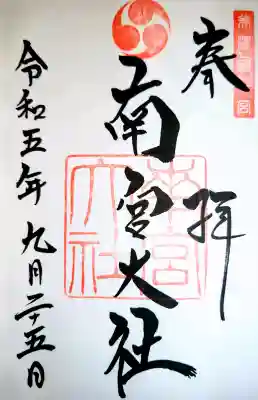 奉拝
南宮大社
令和五年九月二十五日
南宮大社